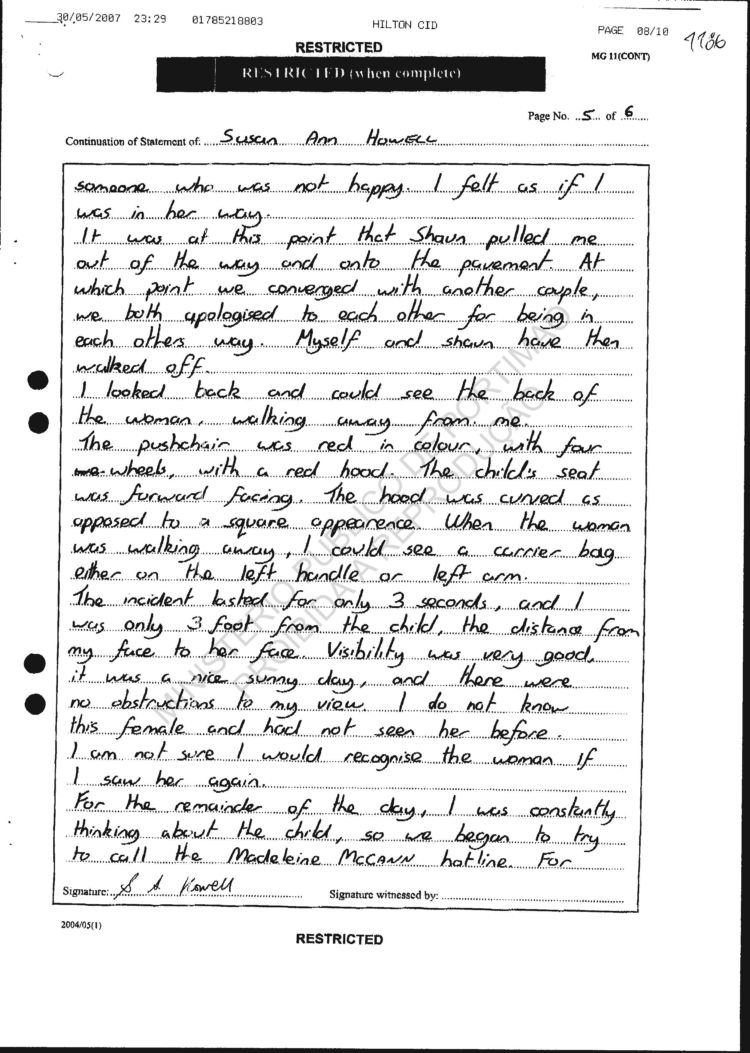 30/05/2007 23:29 01785218803 HILTON CID PAGE 08/10
1186
RESTRICTED
MG 11(CONT)
RESTRICTED (when complete)
Page No. 5 of 6
Continuation of Statement of: Susan Ann Howell
someone who was not happy. I felt as if I
was in her way.
It was at this point that Shaun pulled me
out of the way and onto the pavement. At
which point we converged with another couple,
we both apologised to each other for being in
each others way. Myself and shaun have then
walked off.
I looked back and could see the back of
the woman, walking away from me.
The pushchair was red in colour, with four
wheels, with a red hood. The child's seat
was forward facing. The hood was curved as
opposed to a square appearence. When the woman
was walking away, I could see a carrier bag
either on the left handle or left arm.
The incident lasted for only 3 seconds, and I
was only 3 foot from the child, the distance from
my face to her face. Visibility was very good,
it was a nice sunny day, and there were
no obstructions to my view. I do not know
this female and had not seen her before.
I am not sure I would recognise the woman if
I saw her again.
For the remainder of the day, I was constantly
thinking about the child, so we began to try
to call the Madeleine McCANN hotline. For
Signature: S A Howell Signature witnessed by:
2004/05(1)
RESTRICTED
MINISTÉRIO PÚBLICO DE PORTIMÃO
PROIBIDA A REPRODUÇÃO